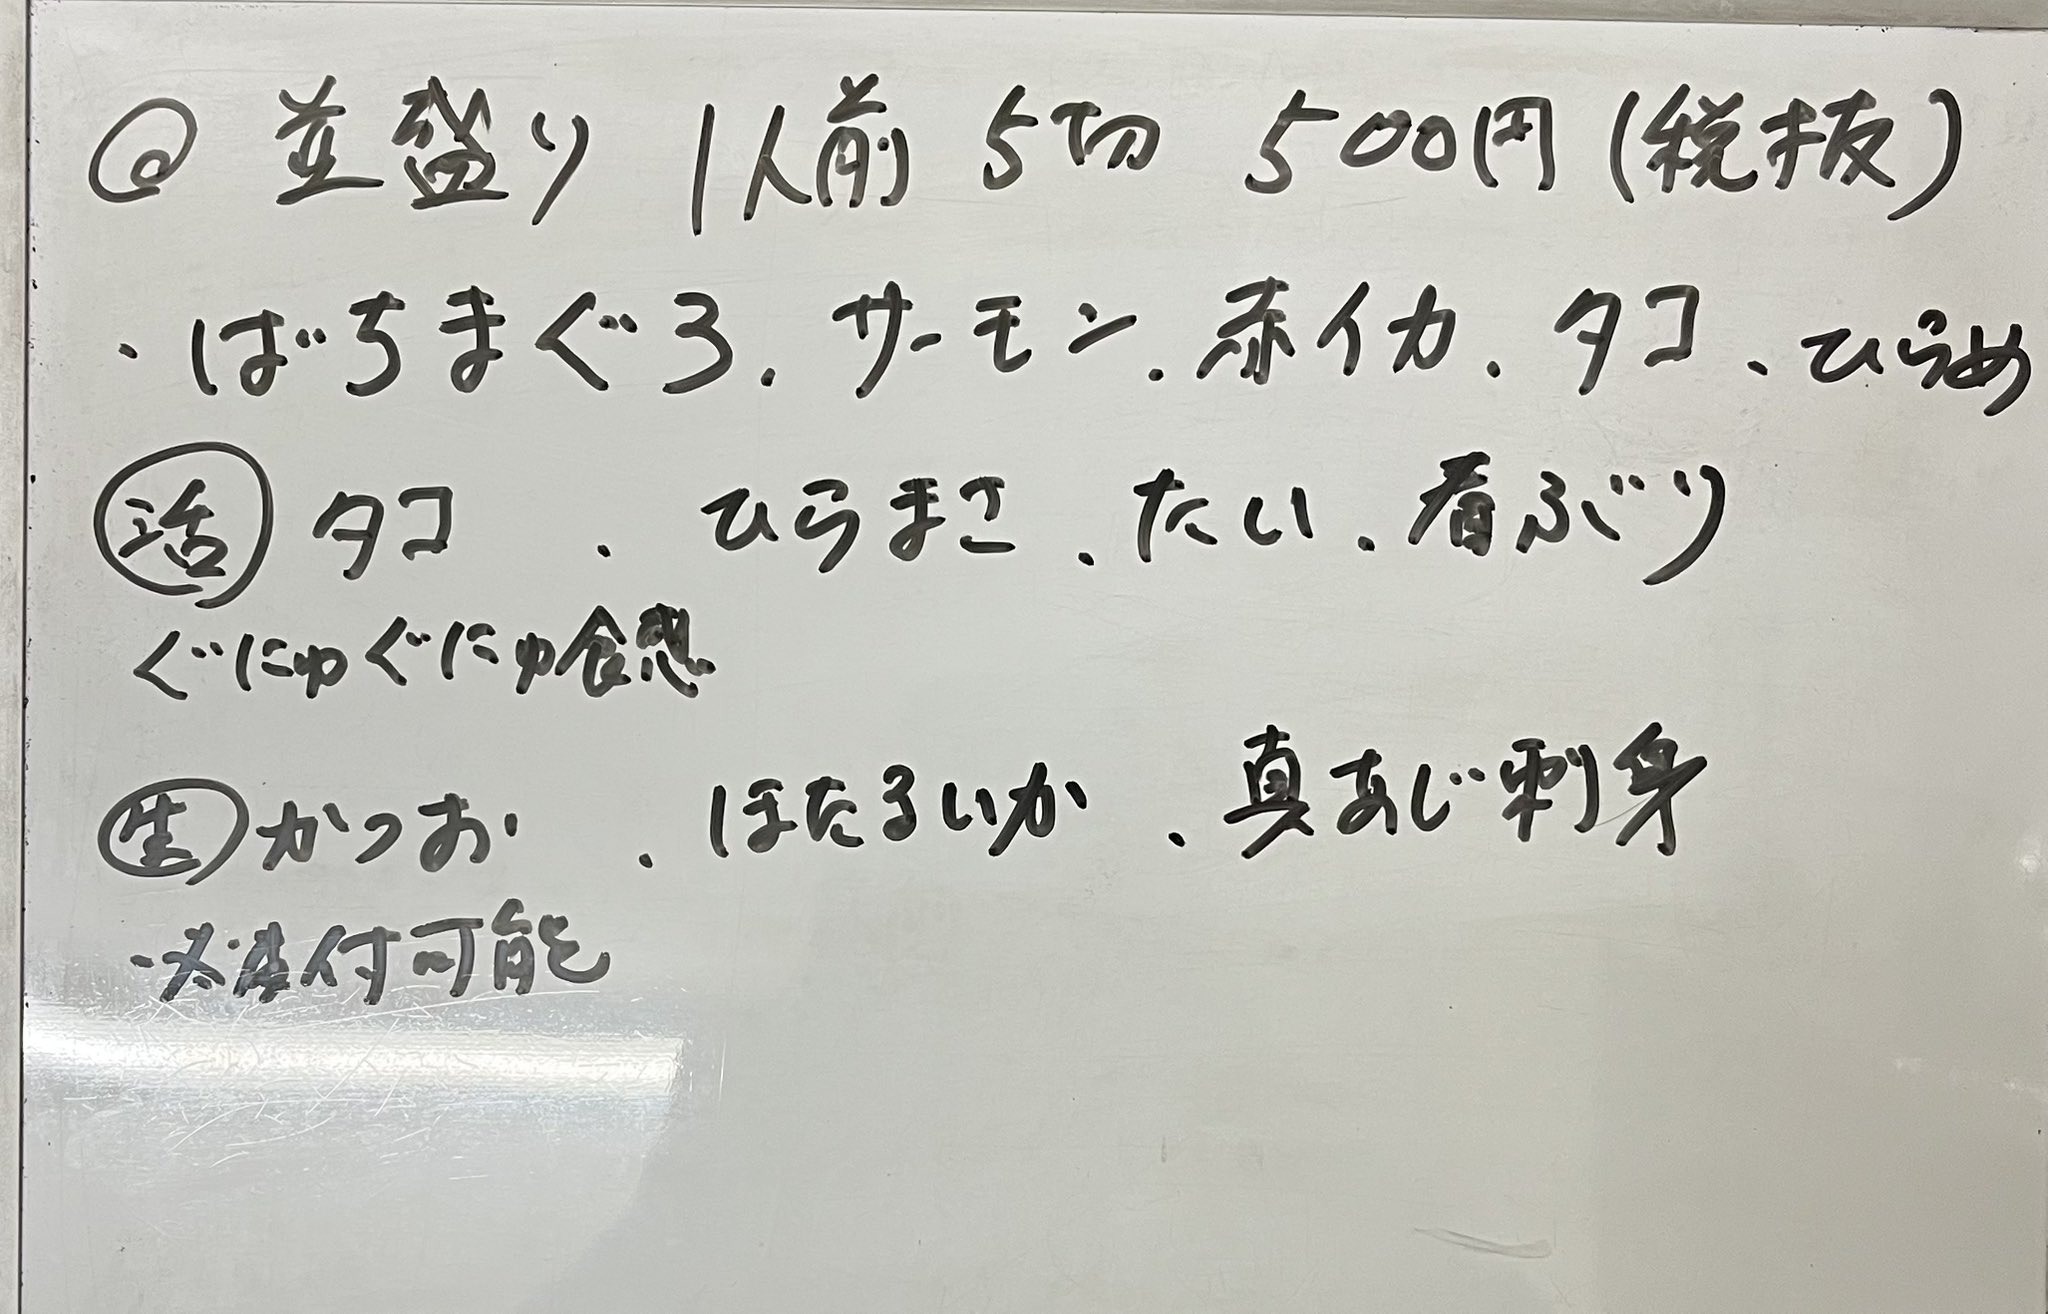 ◎ 並盛り 1人前 5切 500円(税抜)
・ばちまぐろ.サーモン.赤イカ.タコ.ひらめ
㊟活タコ . ひらまさ . たい .
ぐにゅぐにゅ食感
生かつお . ほたるいか . 真あじ刺身
付可能